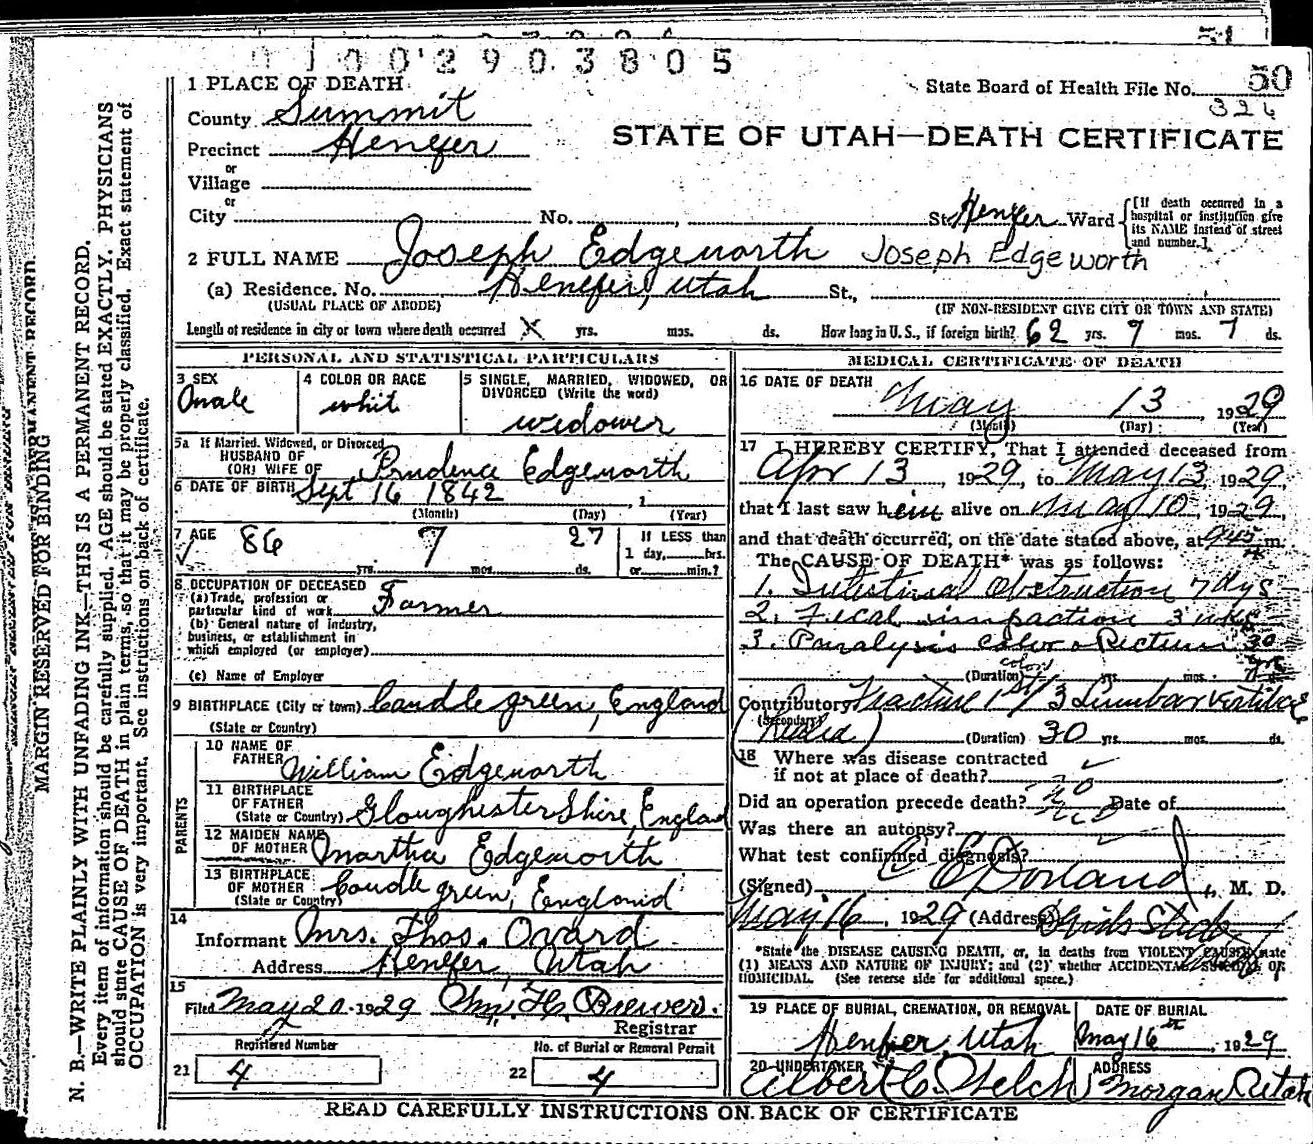 01002903805
50
State Board of Health File No.
326
STATE OF UTAH—DEATH CERTIFICATE
1 PLACE OF DEATH
County Summit
Precinct Henefer
or
Village
or
City No. St. Henefer Ward
[If death occurred in a hospital or institution give its NAME instead of street and number.]
2 FULL NAME Joseph Edgeworth Joseph Edgeworth
(a) Residence. No. Henefer, Utah St.,
(USUAL PLACE OF ABODE) (IF NON-RESIDENT GIVE CITY OR TOWN AND STATE)
Length of residence in city or town where death occurred X yrs. mos. ds. How long in U.S., if foreign birth? 62 yrs. 9 mos. 7 ds.
PERSONAL AND STATISTICAL PARTICULARS
3 SEX
Male
4 COLOR OR RACE
whit
5 SINGLE, MARRIED, WIDOWED, OR DIVORCED (Write the word)
widower
5a If Married, Widowed, or Divorced
HUSBAND OF
(OR) WIFE OF Prudence Edgeworth
6 DATE OF BIRTH Sept 16 1842, 1
(Month) (Day) (Year)
7 AGE 86 yrs. 7 mos. 27 ds.
If LESS than
1 day, hrs.
or min.?
8 OCCUPATION OF DECEASED
(a) Trade, profession or
particular kind of work Farmer
(b) General nature of industry,
business, or establishment in
which employed (or employer)
(c) Name of Employer
9 BIRTHPLACE (City or town) Caudle green, England
(State or Country)
PARENTS
10 NAME OF
FATHER William Edgeworth
11 BIRTHPLACE
OF FATHER
(State or Country) Gloughester Shire, England
12 MAIDEN NAME
OF MOTHER Martha Edgeworth
13 BIRTHPLACE
OF MOTHER
(State or Country) Caudle green, England
14
Informant Mrs. Thos. Ovard
Address Henefer, Utah
15
Filed May 20 1929 Wm. H. Brewer.
Registrar
Registered Number
21 4
No. of Burial or Removal Permit
22 4
MEDICAL CERTIFICATE OF DEATH
16 DATE OF DEATH
May 13, 1929
(Month) (Day) (Year)
17 I HEREBY CERTIFY, That I attended deceased from
Apr 13, 1929, to May 13, 1929,
that I last saw him alive on May 10, 1929,
and that death occurred, on the date stated above, at 945 m.
The CAUSE OF DEATH* was as follows:
1. Intestinal Obstruction 7 dys
2. Fecal impaction 3 wks
3. Paralysis colon & Rectum 30
colon yrs
(Duration) yrs. mos. ds.
Contributory Fracture 1st/3 Lumbar Vertibra
(Secondary)
(Healed) (Duration) 30 yrs. mos. ds.
18 Where was disease contracted
if not at place of death?
Did an operation precede death? no Date of
Was there an autopsy? no
What test confirmed diagnosis?
(Signed) C E Dorland, M. D.
May 16, 1929 (Address)
*State the DISEASE CAUSING DEATH, or, in deaths from VIOLENT CAUSES, state
(1) MEANS AND NATURE OF INJURY; and (2) whether ACCIDENTAL, SUICIDAL OR
HOMICIDAL. (See reverse side for additional space.)
19 PLACE OF BURIAL, CREMATION, OR REMOVAL
Henefer, Utah
DATE OF BURIAL
May 16th, 1929
20 UNDERTAKER
Albert C. Welch
ADDRESS
Morgan Utah
READ CAREFULLY INSTRUCTIONS ON BACK OF CERTIFICATE
MARGIN RESERVED FOR BINDING
N. B.—WRITE PLAINLY WITH UNFADING INK—THIS IS A PERMANENT RECORD.
Every item of information should be carefully supplied. AGE should be stated EXACTLY. PHYSICIANS
should state CAUSE OF DEATH in plain terms, so that it may be properly classified. Exact statement of
OCCUPATION is very important. See instructions on back of certificate.